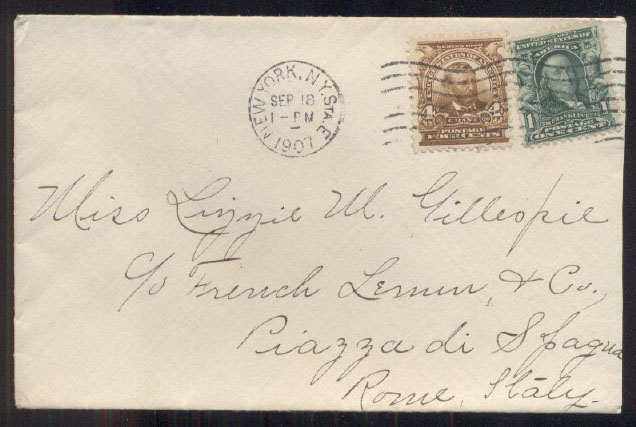 NEW YORK, N.Y. STA. E
SEP 18
1-PM
1907
SERIES 1902
UNITED STATES OF AMERICA
4 4
POSTAGE
FOUR CENTS
UNITED STATES OF AMERICA
FRANKLIN
1 1
POSTAGE
ONE CENT
Miss Lizzie M. Gillespie
c/o French Lemon, & Co.,
Piazza di Spagna
Rome, Italy.